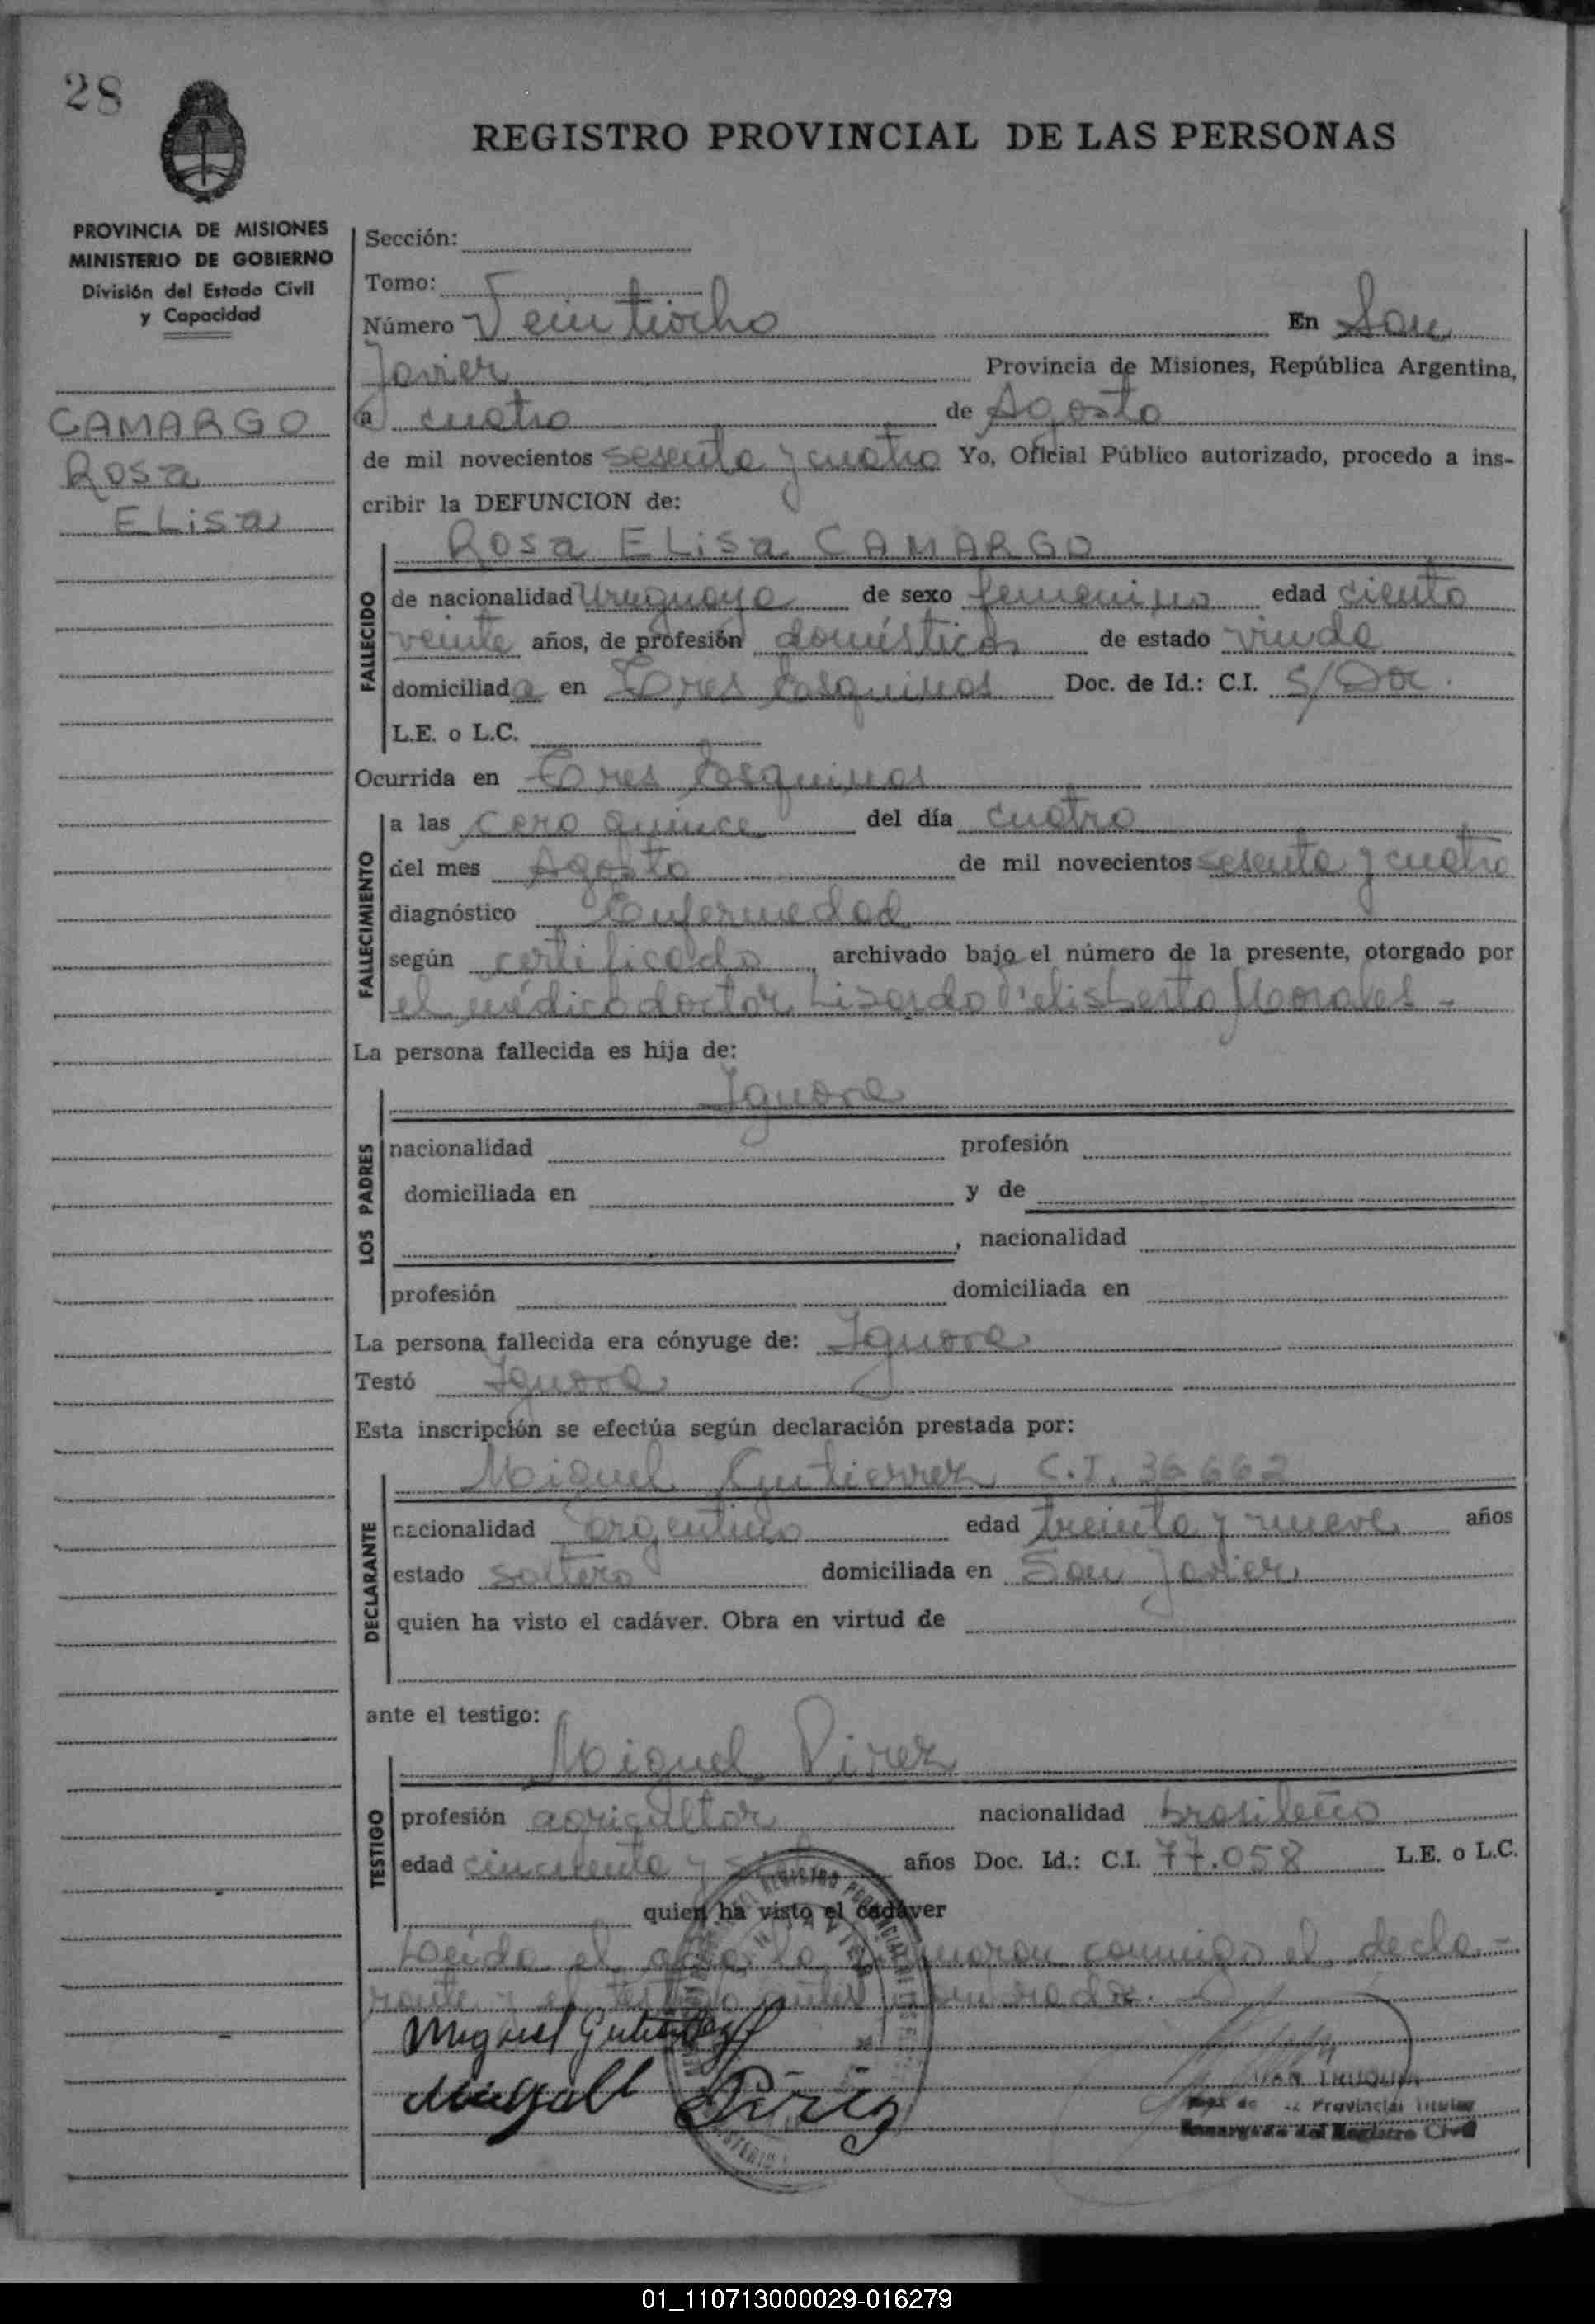 28
REGISTRO PROVINCIAL DE LAS PERSONAS
PROVINCIA DE MISIONES
MINISTERIO DE GOBIERNO
División del Estado Civil
y Capacidad
CAMARGO
Rosa
ELisa
Sección:
Tomo:
Número Veintiocho En San
Javier Provincia de Misiones, República Argentina,
a cuatro de Agosto
de mil novecientos sesenta y cuatro Yo, Oficial Público autorizado, procedo a ins-
cribir la DEFUNCION de:
Rosa ELisa CAMARGO
FALLECIDO
de nacionalidad Uruguaya de sexo femenino edad ciento
veinte años, de profesión domésticos de estado viuda
domiciliada en Tres Esquinas Doc. de Id.: C.I. S/Doc.
L.E. o L.C.
Ocurrida en Tres Esquinas
FALLECIMIENTO
a las cero quince del día cuatro
del mes Agosto de mil novecientos sesenta y cuatro
diagnóstico Enfermedad
según certificado, archivado bajo el número de la presente, otorgado por
el médico doctor Lisardo Felisberto Morales -
La persona fallecida es hija de:
Ignora
LOS PADRES
nacionalidad profesión
domiciliada en y de
, nacionalidad
profesión domiciliada en
La persona fallecida era cónyuge de: Ignora
Testó Ignora
Esta inscripción se efectúa según declaración prestada por:
Miguel Gutierrez C.I. 36662
DECLARANTE
nacionalidad argentino edad treinta y nueve años
estado soltero domiciliada en San Javier
quien ha visto el cadáver. Obra en virtud de
ante el testigo:
Miguel Pirez
TESTIGO
profesión agricultor nacionalidad brasileño
edad cincuenta y años Doc. Id.: C.I. 77.058 L.E. o L.C.
quien ha visto el cadáver
Leida el acta la firmaron conmigo el decla-
rante y el testigo antes nombrado.
Miguel Gutierrez
Miguel Pirez
Provincial Titular
Encargado del Registro Civil
01_110713000029-016279